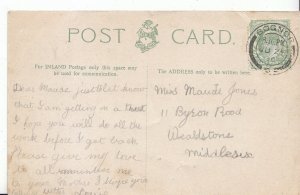 BOGNOR
POST CARD.
For INLAND Postage only this space may
be used for communication.
The ADDRESS only to be written here.
Dear Mause Just let know
that I am getting on a treat
I hope you will do all the
work before I get back
Please give my love
to all
your Mother I Hope you
Miss Maude Jones
11 Byron Road
Wealdstone
Middlesex